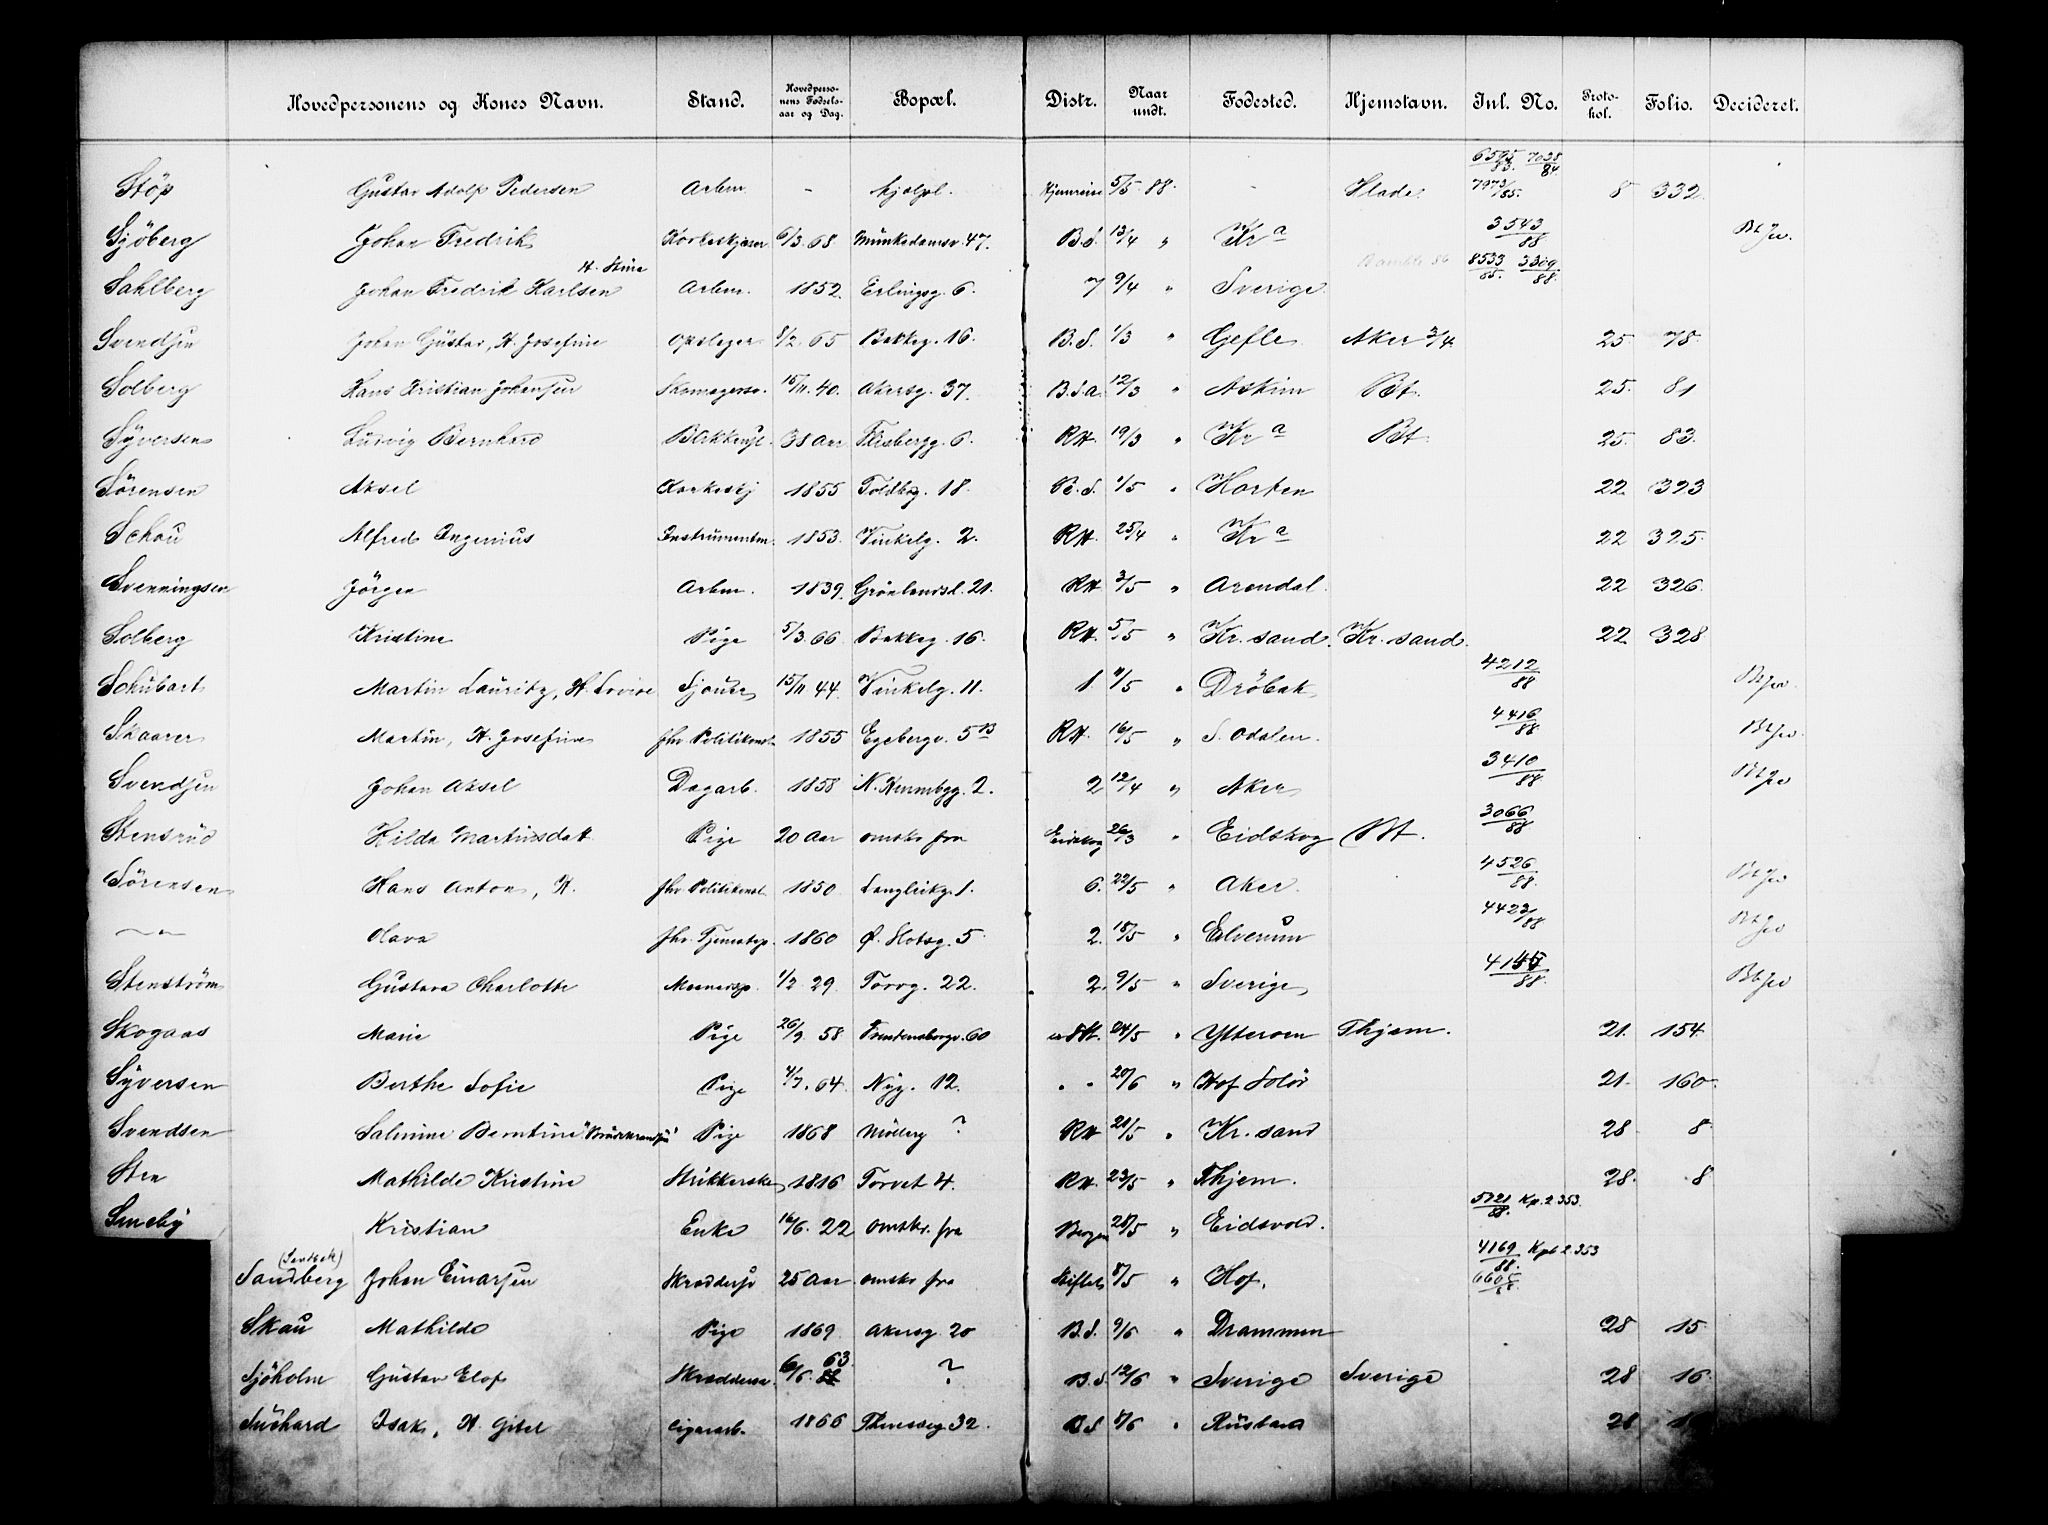 Hovedpersonens og Kones Navn. Stand. Hovedpersonens Fødselsaar og Dag. Bopæl. Distr. Naar undt. Fodested. Hjemstavn. Inl. No. Protokol. Folio. Decideret.
6595/83. 7038/84
Stöp Gustav Adolf Pedersen Arbm. - hjælpl. Hjemreise 5/5 88. - Hlade. 7973/85. 8 332
Sjöberg Johan Fredrik Korkeskjærer 6/3 68 Munkedamsv. 47. B.S. 13/4 " Kr a 3543/88
H. Stina
Sahlberg Johan Fredrik Karlsen Arbm. 1852. Erlingsg. 6. 7 9/4 " Sverige. 8533/85. 3309/88.
Svendsen Johan Gustav, H. Josefine Opslager 8/2 65 Bakkeg. 16. B.S. 1/3 " Gefle Aker 3/4 25. 78.
Solberg Hans Kristian Johansen Skomagersv. 15/11. 40. Akersg. 37. B.S.a. 12/3 " Askim Bt. 25. 81
Syversen Ludvig Bernhard 38 Aar 6. RH. 19/3 " Kr a Bt 25. 83.
Sörensen Aksel Korkeskj 1855 Toldbg. 18. B.S. 1/5 " Horten 22 323
Schou Alfred Ingenius Instrumentm. 1853. Vinkelg. 2. RH. 25/4 " Kr a 22 325.
Svenningsen Jörgen Arbm. 1839. Grönlandsl. 21. RH 3/5 " Arendal. 22 326.
Solberg Kristine Pige 5/3 66 Bakkeg. 16. RH. 5/5 " Kr. sand. Kr. sand. 22 328
Schubart Martin Lauritz, H. Lovise Sjouer 15/11 44. Vinkelg. 11. 1. 11/5 " Dröbak 4212/88
Skaarer Martin, H. Josefine fhv. Politikonst. 1855 Egebergv. 5 B RH. 16/5 " S. Odalen. 4416/88.
Svendsen Johan Aksel Dagarb. 1858 2. 2 12/4 " Aker 3410/88.
Stensrud Hilda Martinsdatt. Pige 20 Aar omsks fra Eidskog 26/3 " Eidskog Bt. 3066/88
Sörensen Hans Anton, H. fhv. Politikonst. 1850. Langliekg. 1. 6. 22/5 " Aker. 4526/88.
— " — Olava fhv. Tjenestep. 1860 Ø. Slotsg. 5 2. 15/5 " Elverum 4423/88
Stenström Gustava Charlotte 1/2 29. Torvg. 22. 2. 9/5 " Sverige 4155/88.
Skogaas Marie Pige 26/9 58. 60 24/5 " Ytteroen Thjem. 21. 154.
Syversen Berthe Sofie Pige 4/7. 64. Nyg. 12. " " 20/6 " Hof Solör 21. 160.
Svendsen Salmine Berntine Pige 1868 Mülerg ? RH 21/5 " Kr. sand 28 8.
Sten Mathilde Kristine Strikkerske 1816 Torvet 4. RH. 23/5 " Thjem. 28. 8.
Smeby Kristian Enke 16/6. 22 omskr. fra Bergen 28/5 " Eidsvold. 5721/88. Kp. 2 353.
(Sandbek)
Sandberg Johan Einarsen Skræddersv 25 Aar omsks fra 8/5 " Hof. 4169/88. Kpl 2 353
Skau Mathilde Pige 1869 Akersg. 20 B.S. 9/6 " Drammen 28 15.
Sjöholm Gustav Elof Skræddersv. 6/6. 63. ? B.S. 12/6 " Sverige Sverige 28 16.
Suchard Isak, H. Gitel Cigararb. 1866 32. B.S 5/6 " Rusland 28